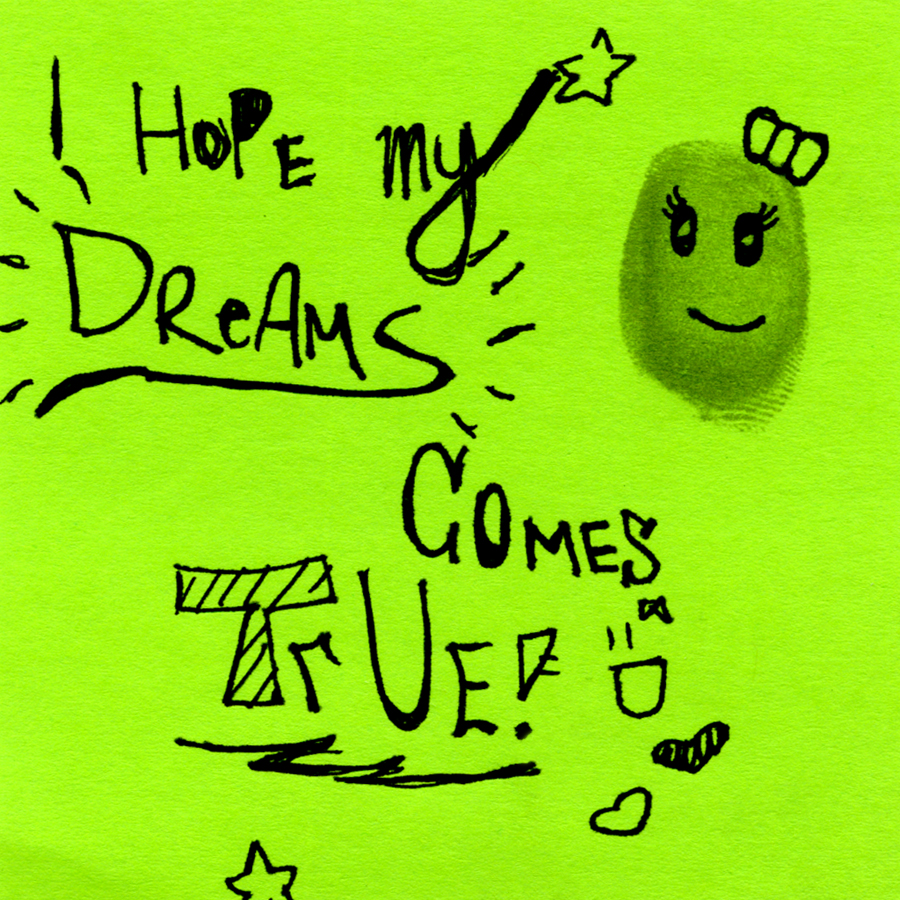 I HOPE my
DReAMS
COMES
TrUE!